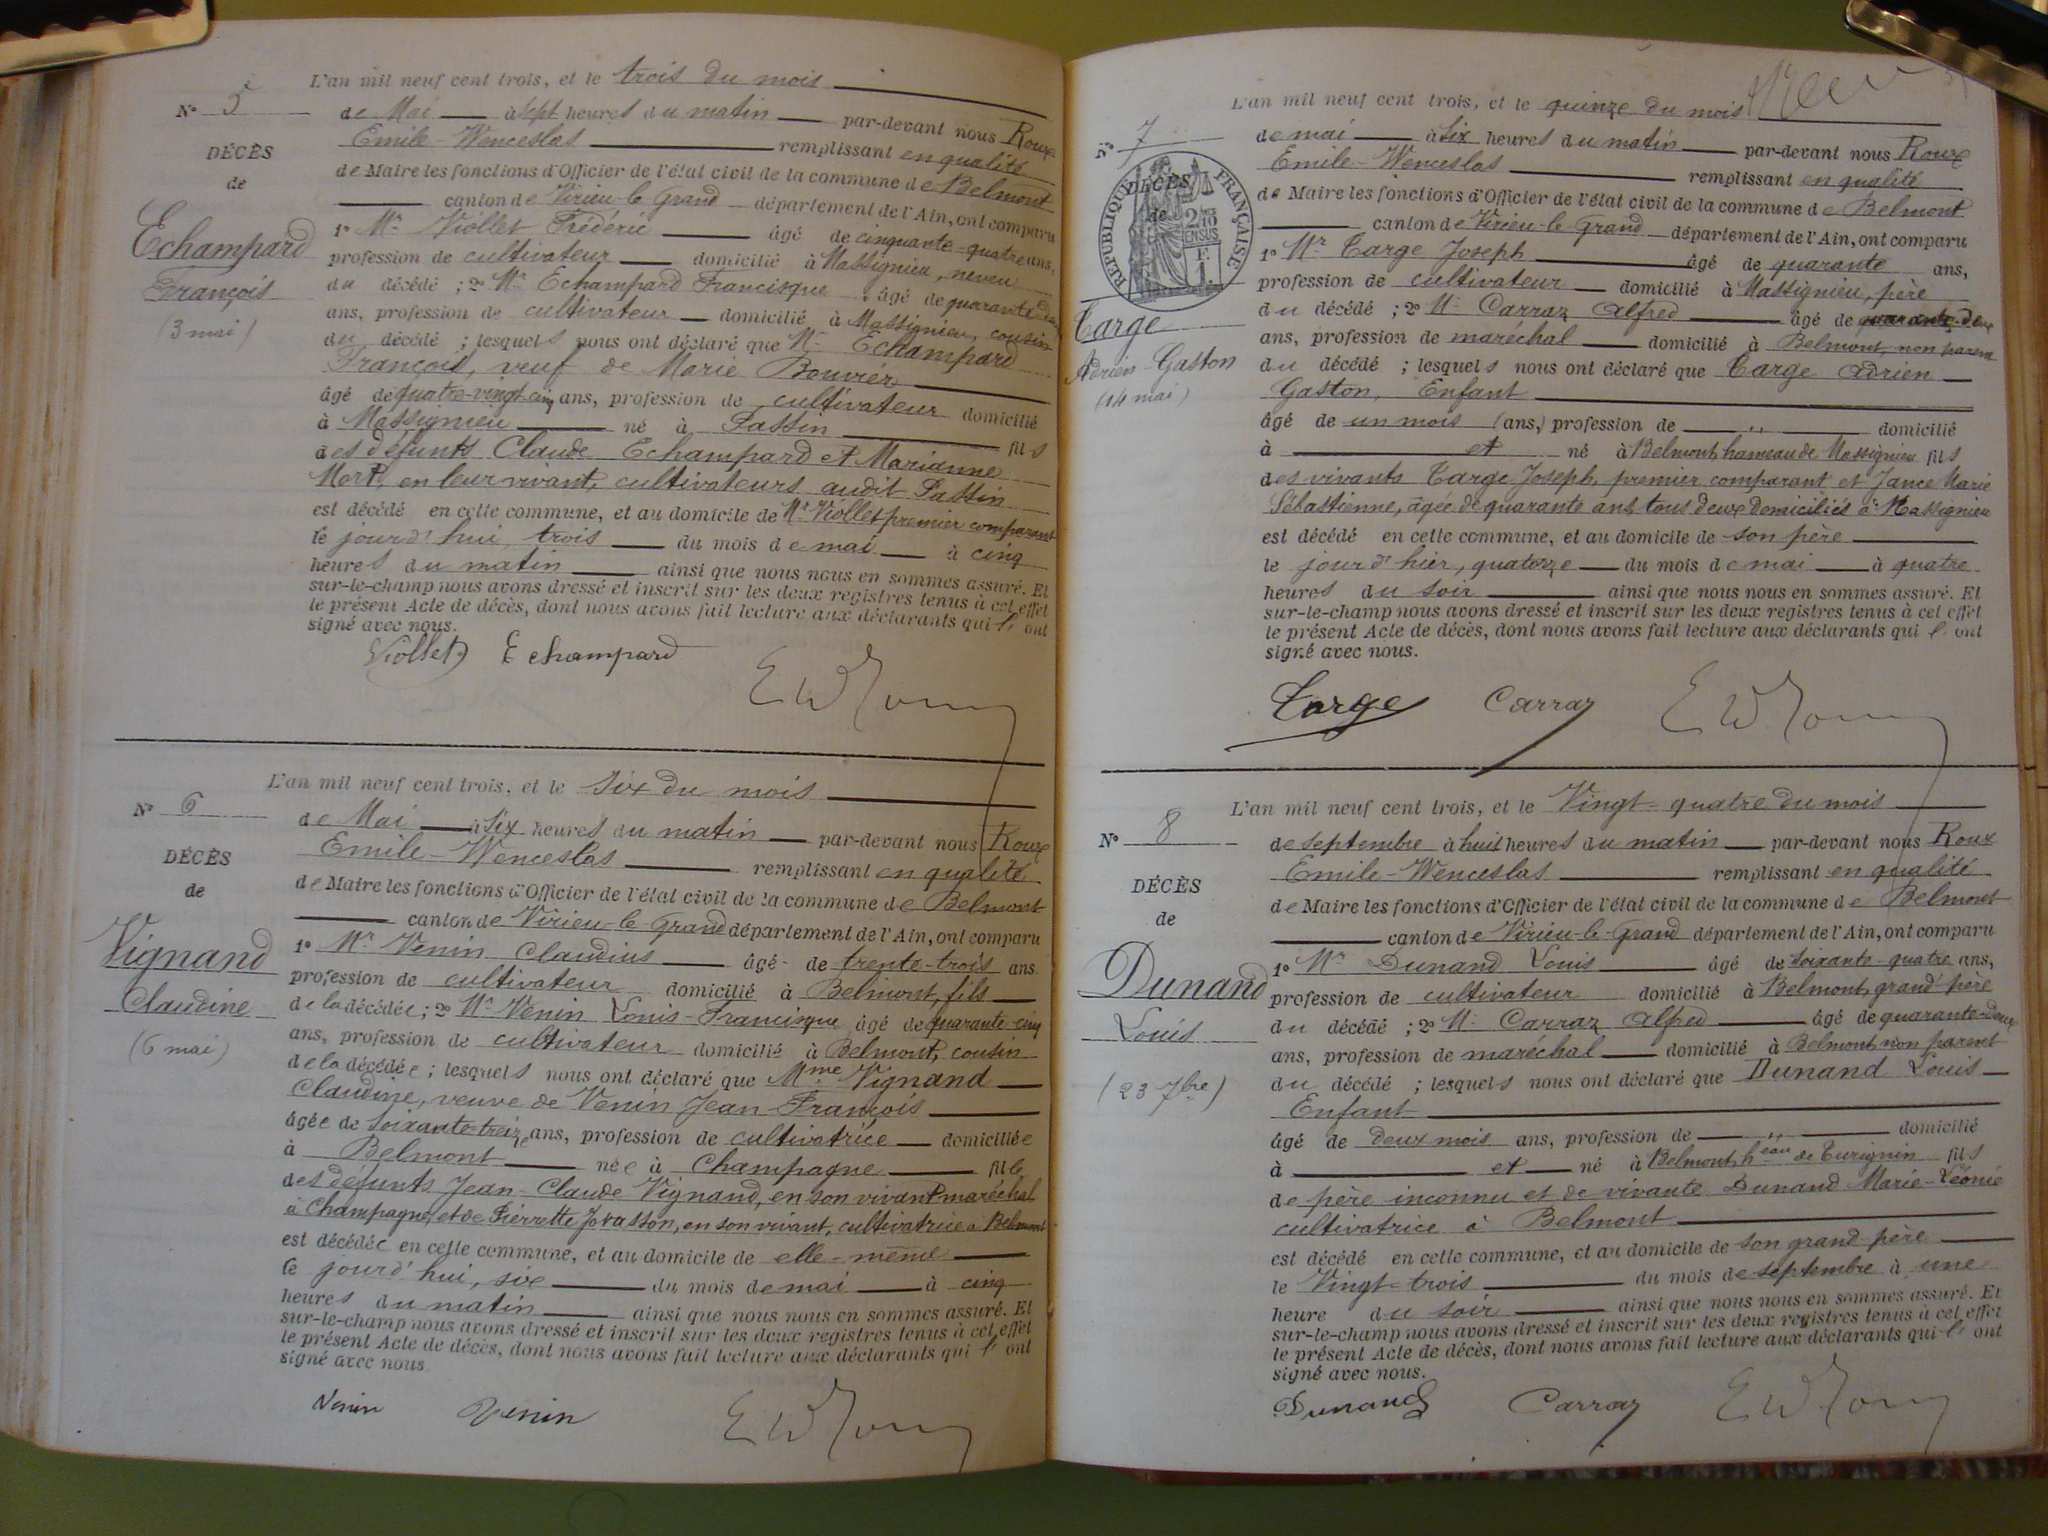 L'an mil neuf cent trois, et le trois du mois
N° 5
de Mai à sept heures du matin par-devant nous Roux
Emile-Wenceslas remplissant en qualité
DÉCÈS
de Maire les fonctions d'Officier de l'état civil de la commune de Belmont
de
canton de Virieu-le-Grand département de l'Ain, ont comparu
Echampard
1° Mr Viollet Frédéric âgé de cinquante-quatre ans,
profession de cultivateur domicilié à Massignieu, neveu
François
du décédé ; 2° Mr Echampard Francisque âgé de quarante-deux
(3 mai)
ans, profession de cultivateur domicilié à Massignieu, cousin
du décédé ; lesquels nous ont déclaré que Mr Echampard
François, veuf de Marie Bouvier
âgé de quatre-vingt cinq ans, profession de cultivateur domicilié
à Massignieu né à Passin fils
des défunts Claude Echampard et Marianne
Mort, en leur vivant, cultivateurs audit Passin
est décédé en cette commune, et au domicile de Mr Viollet premier comparant
le jourd'hui trois du mois de mai à cinq
heures du matin ainsi que nous nous en sommes assuré. Et
sur-le-champ nous avons dressé et inscrit sur les deux registres tenus à cet effet
le présent Acte de décès, dont nous avons fait lecture aux déclarants qui l' ont
signé avec nous.
Viollet Echampard
E W Roux
L'an mil neuf cent trois, et le six du mois
N° 6
de Mai à six heures du matin par-devant nous Roux
Emile-Wenceslas remplissant en qualité
DÉCÈS
de Maire les fonctions d'Officier de l'état civil de la commune de Belmont
de
canton de Virieu-le-Grand département de l'Ain, ont comparu
Vignand
1° Mr Venin Claudius âgé de trente-trois ans
profession de cultivateur domicilié à Belmont, fils
Claudine
de la décédée ; 2° Mr Venin Louis-Francisque âgé de quarante-cinq
(6 mai)
ans, profession de cultivateur domicilié à Belmont, cousin
de la décédée ; lesquels nous ont déclaré que Mme Vignand
Claudine, veuve de Venin Jean-François
âgée de soixante-treize ans, profession de cultivatrice domiciliée
à Belmont née à Champagne fille
des défunts Jean-Claude Vignand, en son vivant maréchal
à Champagne, et de Pierrette Jovasson, en son vivant, cultivatrice à Belmont
est décédée en cette commune, et au domicile de elle-même
le jourd'hui, six du mois de mai à cinq
heures du matin ainsi que nous nous en sommes assuré. Et
sur-le-champ nous avons dressé et inscrit sur les deux registres tenus à cet effet
le présent Acte de décès, dont nous avons fait lecture aux déclarants qui l' ont
signé avec nous.
Venin Venin E W Roux
L'an mil neuf cent trois, et le quinze du mois
N° 7
de mai à six heures du matin par-devant nous Roux
Emile-Wenceslas remplissant en qualité
DÉCÈS
de
RÉPUBLIQUE FRANÇAISE
2/10 EN SUS
F. 1
de Maire les fonctions d'Officier de l'état civil de la commune de Belmont
canton de Virieu-le-Grand département de l'Ain, ont comparu
1° Mr Targe Joseph âgé de quarante ans,
profession de cultivateur domicilié à Massignieu, père
Targe
du décédé ; 2° Mr Carraz Alfred âgé de quarante-deux
Adrien-Gaston
ans, profession de maréchal domicilié à Belmont, non parent
(14 mai)
du décédé ; lesquels nous ont déclaré que Targe Adrien
Gaston, Enfant
âgé de un mois (ans,) profession de " domicilié
à et né à Belmont, hameau de Massignieu fils
des vivants Targe Joseph, premier comparant et Jance Marie
Sébastienne, âgée de quarante ans tous deux domiciliés à Massignieu
est décédé en cette commune, et au domicile de son père
le jour d'hier, quatorze du mois de mai à quatre
heures du soir ainsi que nous nous en sommes assuré. Et
sur-le-champ nous avons dressé et inscrit sur les deux registres tenus à cet effet
le présent Acte de décès, dont nous avons fait lecture aux déclarants qui l' ont
signé avec nous.
Targe Carraz E W Roux
L'an mil neuf cent trois, et le Vingt-quatre du mois
N° 8
de septembre à huit heures du matin par-devant nous Roux
Emile-Wenceslas remplissant en qualité
DÉCÈS
de Maire les fonctions d'Officier de l'état civil de la commune de Belmont
de
canton de Virieu-le-Grand département de l'Ain, ont comparu
Dunand
1° Mr Dunand Louis âgé de soixante-quatre ans,
profession de cultivateur domicilié à Belmont, grand'père
Louis
du décédé ; 2° Mr Carraz Alfred âgé de quarante-deux
ans, profession de maréchal domicilié à Belmont, non parent
(23 7bre)
du décédé ; lesquels nous ont déclaré que Dunand Louis
Enfant
âgé de deux mois ans, profession de " domicilié
à et né à Belmont, heau de Turignin fils
de père inconnu et de vivante Dunand Marie-Léonie
cultivatrice à Belmont
est décédé en cette commune, et au domicile de son grand-père
le Vingt-trois du mois de septembre à une
heure du soir ainsi que nous nous en sommes assuré. Et
sur-le-champ nous avons dressé et inscrit sur les deux registres tenus à cet effet
le présent Acte de décès, dont nous avons fait lecture aux déclarants qui l' ont
signé avec nous.
Dunand Carraz E W Roux